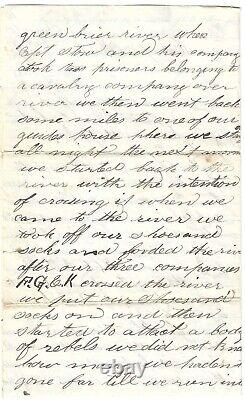 green brier river when
Cpt Stow and his company
took two prisoners belonging to
a cavalry company over
river we then went back
some miles to one of our
guides house where we
all night the next
we started back to the
river with the intention
of crossing it when we
came to the river we
took off our shoes and
socks and forded the
after our three companies
G. & K crossed the river
we put our shoes and
socks on and then
started to attact a body
of rebels we did not
how many we hadent
gone far till we run